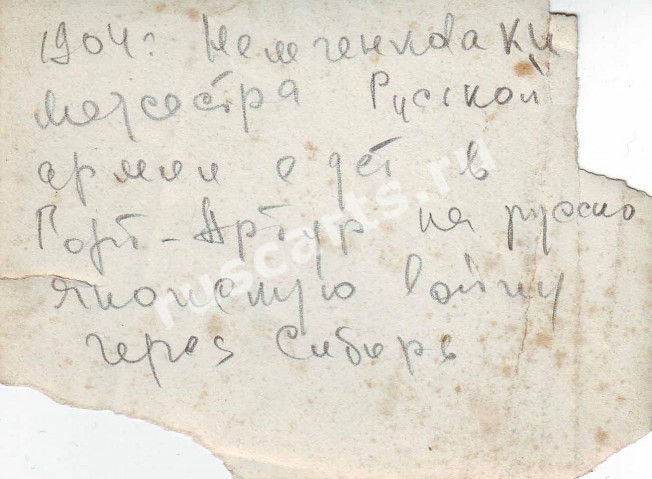 1904г. Немченкова К.И
медсестра Русской
армии едет в
Порт-Артур на русско
японскую войну
через Сибирь
ruscarts.ru